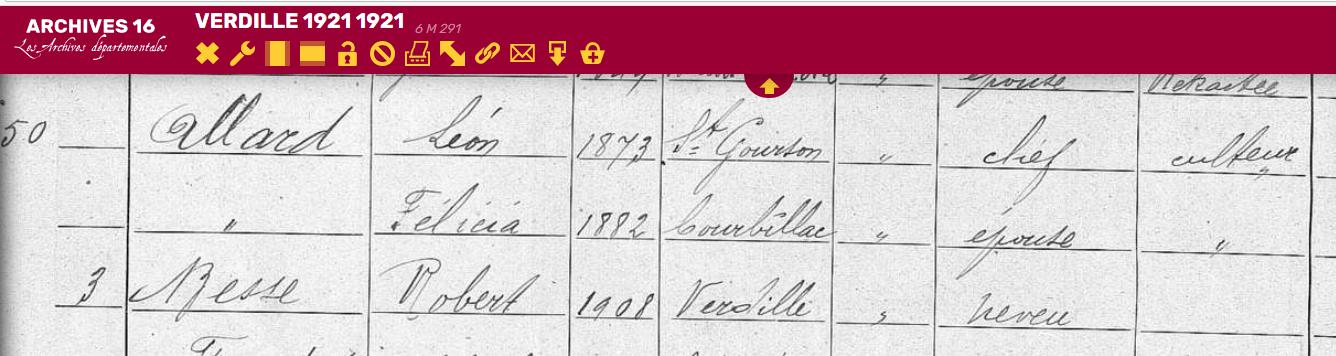 ARCHIVES 16
Les Archives départementales
VERDILLE 1921 1921
6 M 291
épouse Retraitée
50 Allard Léon 1873 St Gourson " chef culteur
" Félicia 1882 Courbillac " épouse "
3 Besse Robert 1908 Verdille " neveu